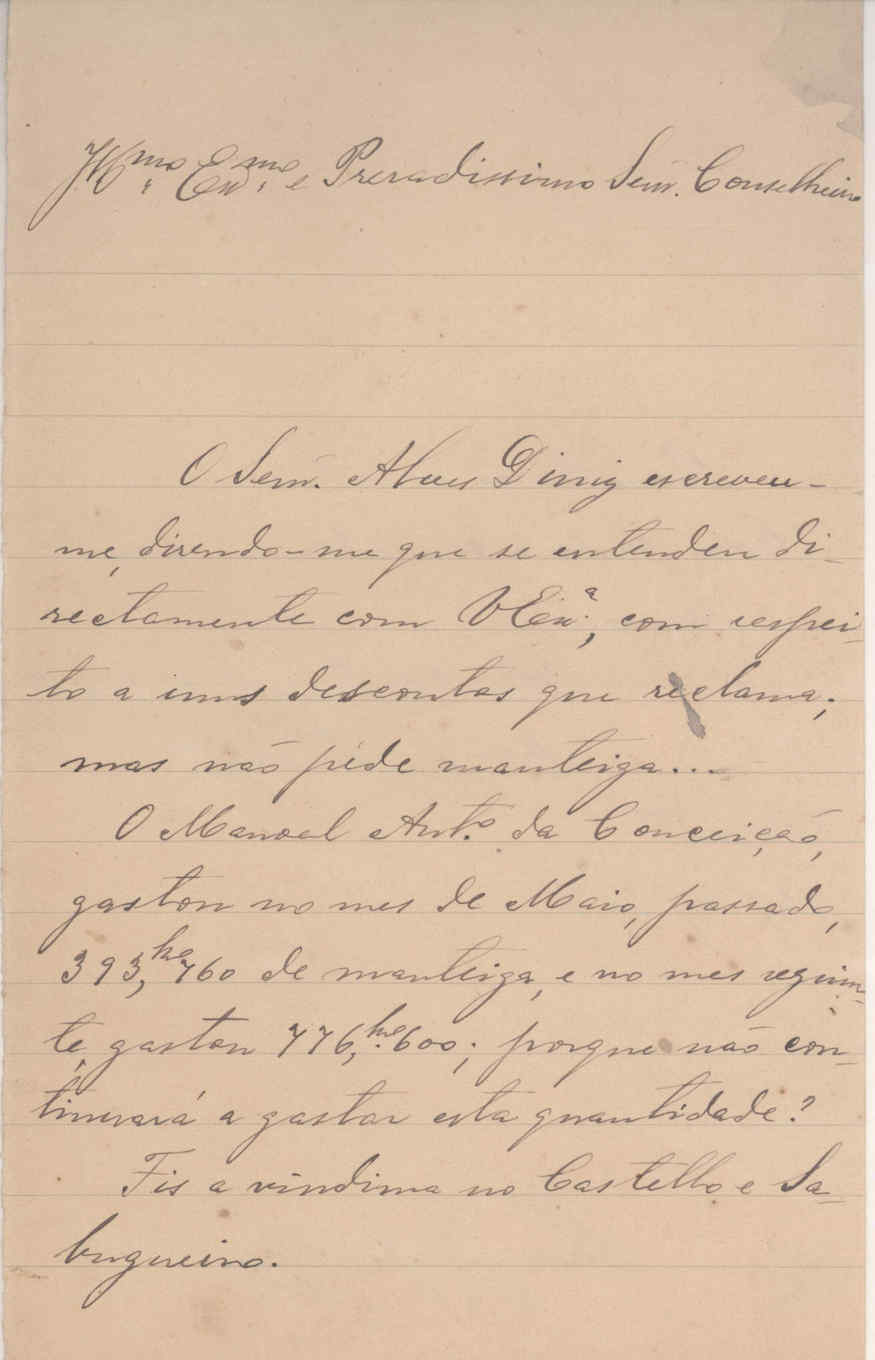 Illmo. Exmo. e Preradissimo Senr. Conselheiro
O Senr. Alves Diniz escreveu-
me, dizendo-me que se entenden di-
rectamente com V Exa., com respei-
to a uns descontos que reclama,
mas não péde manteiga...
O Manoel Anto. da Conceição,
gastou no mes de Maio, passado,
393,ko760 de manteiga, e no mes seguin-
te, gastou 776,ko600; porque não con-
tinuará a gastar esta quantidade?
Fis a vindima no Castello e Sa-
bugueiro.